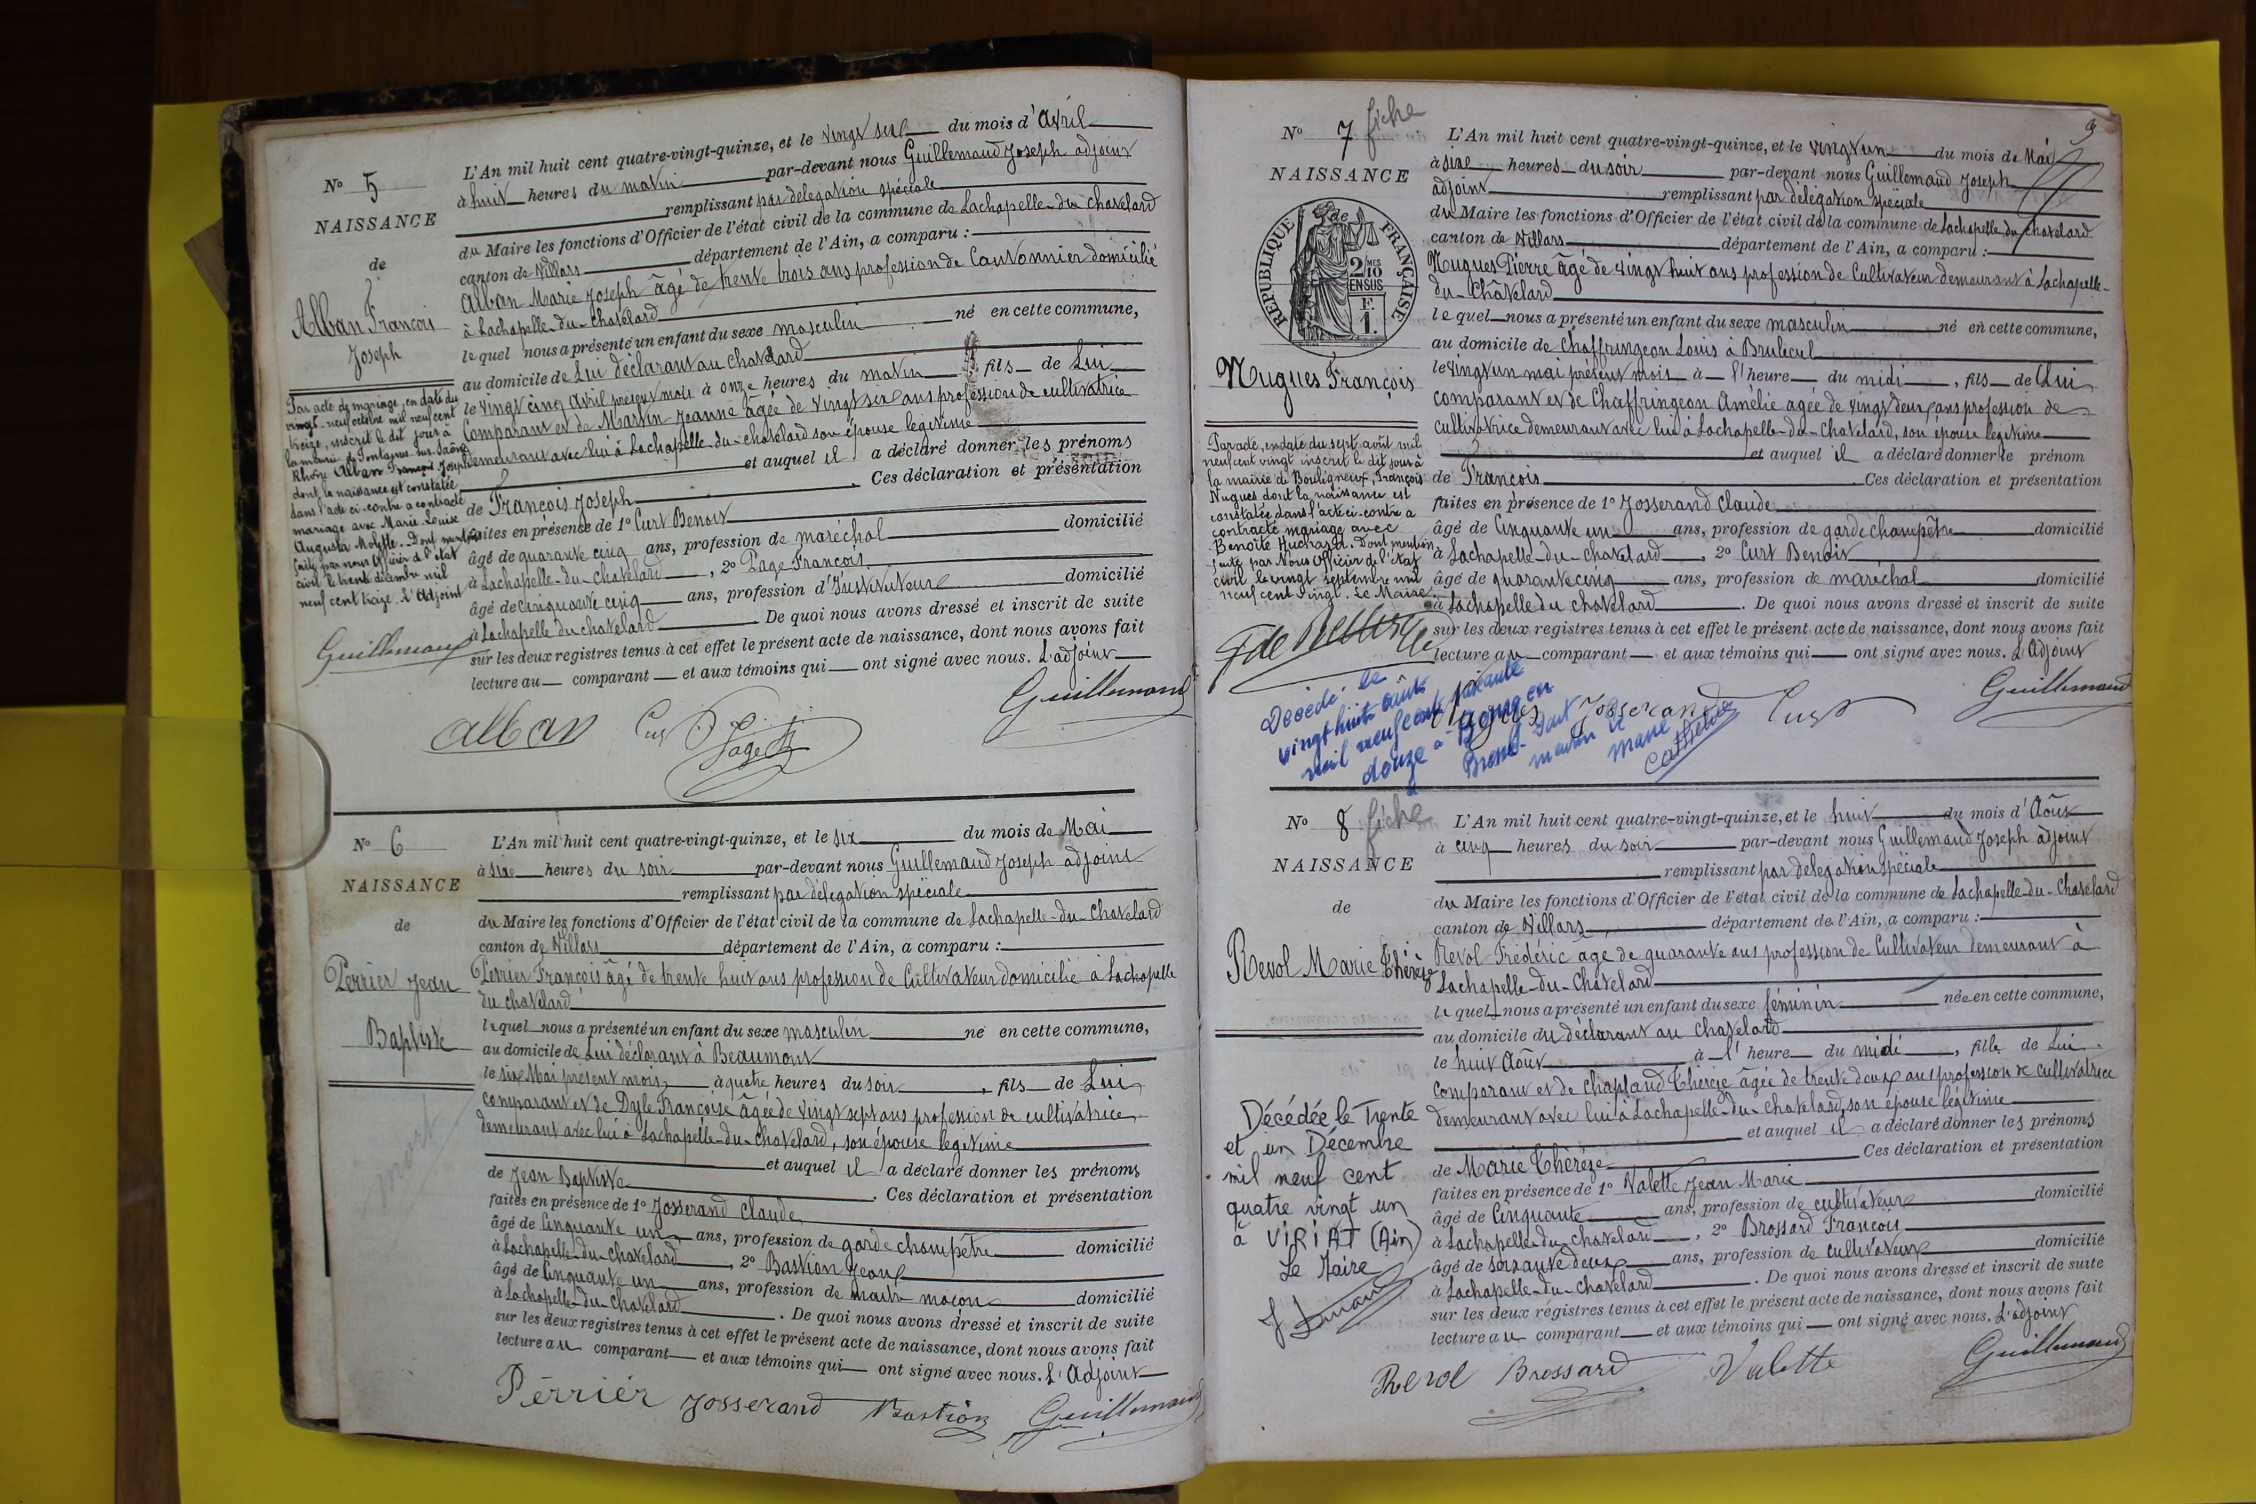 N° 5
NAISSANCE
de
Alban François
Joseph
Par acte de mariage, en date du
vingt-neuf octobre mil neuf cent
treize, inscrit le dit jour à
la mairie de Fontaines-sur-Saône
Rhône Alban François Joseph
dont la naissance est constatée
dans l'acte ci-contre a contracté
mariage avec Marie Louise
Augusta Molette. Dont mention
faite par nous Officier de l'état
civil le trente décembre mil
neuf cent treize. L'Adjoint
Guillemaud
L'An mil huit cent quatre-vingt-quinze, et le vingt six du mois d'Avril
à huit heures du matin par-devant nous Guillemaud Joseph adjoint
remplissant par délégation spéciale
du Maire les fonctions d'Officier de l'état civil de la commune de Lachapelle-du-Chatelard
canton de Villars département de l'Ain, a comparu :
Alban Marie Joseph âgé de trente trois ans profession de Cantonnier domicilié
à Lachapelle-du-Chatelard
lequel nous a présenté un enfant du sexe masculin né en cette commune,
au domicile de Lui déclarant au Chatelard
le vingt cinq Avril présent mois à onze heures du matin fils de Lui
Comparant et de Martin Jeanne âgée de vingt six ans profession de cultivatrice
demeurant avec lui à Lachapelle-du-Chatelard son épouse légitime
et auquel il a déclaré donner les prénoms
de François Joseph Ces déclaration et présentation
faites en présence de 1° Curt Benoit
âgé de quarante cinq ans, profession de maréchal domicilié
à Lachapelle-du-Chatelard, 2° Page François
âgé de cinquante cinq ans, profession d'Instituteur domicilié
à Lachapelle du Chatelard. De quoi nous avons dressé et inscrit de suite
sur les deux registres tenus à cet effet le présent acte de naissance, dont nous avons fait
lecture au comparant et aux témoins qui ont signé avec nous. L'adjoint
Alban Curt Page Guillemaud
N° 6
NAISSANCE
de
Perrier Jean
Baptiste
mort
L'An mil huit cent quatre-vingt-quinze, et le six du mois de Mai
à six heures du soir par-devant nous Guillemaud Joseph adjoint
remplissant par délégation spéciale
du Maire les fonctions d'Officier de l'état civil de la commune de Lachapelle-du-Chatelard
canton de Villars département de l'Ain, a comparu :
Perrier François âgé de trente huit ans profession de Cultivateur domicilié à Lachapelle
du Chatelard
lequel nous a présenté un enfant du sexe masculin né en cette commune,
au domicile de Lui déclarant à Beaumont
le six Mai présent mois à quatre heures du soir, fils de Lui
comparant et de Dyle Françoise âgée de vingt sept ans profession de cultivatrice
demeurant avec lui à Lachapelle-du-Chatelard, son épouse légitime
et auquel il a déclaré donner les prénoms
de Jean Baptiste. Ces déclaration et présentation
faites en présence de 1° Josserand Claude
âgé de Cinquante un ans, profession de garde champêtre domicilié
à Lachapelle-du-Chatelard, 2° Bastion Jean
âgé de Cinquante un ans, profession de maitre maçon domicilié
à Lachapelle-du-Chatelard. De quoi nous avons dressé et inscrit de suite
sur les deux registres tenus à cet effet le présent acte de naissance, dont nous avons fait
lecture au comparant et aux témoins qui ont signé avec nous. L'Adjoint
Perrier Josserand Bastion Guillemaud
3
N° 7 fiche
NAISSANCE
de
RÉPUBLIQUE FRANÇAISE
2 MES 10
EN SUS
1 F
Nugues François
Par acte, en date du sept août mil
neuf cent vingt inscrit le dit jour à
la mairie de Bouligneux, François
Nugues dont la naissance est
constatée dans l'acte ci-contre a
contracté mariage avec
Benoîte Huchard. Dont mention
faite par Nous Officier de l'état
civil le vingt septembre mil
neuf cent vingt. Le Maire
Décédé le
vingt huit août
mil neuf cent soixante
douze à Bourg en
Bresse. Dont
mention le
Maire
L'An mil huit cent quatre-vingt-quinze, et le vingt un du mois de Mai
à sixe heures du soir par-devant nous Guillemaud Joseph
adjoint remplissant par délégation spéciale
du Maire les fonctions d'Officier de l'état civil de la commune de Lachapelle du Chatelard
canton de Villars département de l'Ain, a comparu :
Nugues Pierre âgé de vingt huit ans profession de Cultivateur demeurant à Lachapelle-
du-Châtelard
lequel nous a présenté un enfant du sexe masculin né en cette commune,
au domicile de Chaffringeon Louis à Brulecul
le vingt un mai présent mois à l'heure du midi, fils de Lui
comparant et de Chaffringeon Amélie âgée de vingt deux ans profession de
cultivatrice demeurant avec lui à Lachapelle-du-Chatelard, son épouse légitime
et auquel il a déclaré donner le prénom
de François Ces déclaration et présentation
faites en présence de 1° Josserand Claude
âgé de Cinquante un ans, profession de garde champêtre domicilié
à Lachapelle-du-Chatelard, 2° Curt Benoit
âgé de quarante cinq ans, profession de maréchal domicilié
à Lachapelle du Chatelard. De quoi nous avons dressé et inscrit de suite
sur les deux registres tenus à cet effet le présent acte de naissance, dont nous avons fait
lecture au comparant et aux témoins qui ont signé avec nous. L'Adjoint
Nugues Josserand Curt Guillemaud
N° 8 fiche
NAISSANCE
de
Revol Marie Thérèze
Décédée le Trente
et un Décembre
mil neuf cent
quatre vingt un
à VIRIAT (Ain)
Le Maire
L'An mil huit cent quatre-vingt-quinze, et le huit du mois d'Août
à cinq heures du soir par-devant nous Guillemaud Joseph adjoint
remplissant par délégation spéciale
du Maire les fonctions d'Officier de l'état civil de la commune de Lachapelle-du-Chatelard
canton de Villars département de l'Ain, a comparu :
Revol Frédéric age de quarante ans profession de Cultivateur demeurant à
Lachapelle-du-Chatelard
lequel nous a présenté un enfant du sexe féminin née en cette commune,
au domicile du déclarant au Chatelard
le huit Août à l'heure du midi, fille de Lui
comparant et de Chapland Thérèze âgée de trente deux ans profession de cultivatrice
demeurant avec lui à Lachapelle-du-Chatelard, son épouse légitime
et auquel il a déclaré donner les prénoms
de Marie Thérèze Ces déclaration et présentation
faites en présence de 1° Valette Jean Marie
âgé de Cinquante ans, profession de cultivateur domicilié
à Lachapelle du Chatelard, 2° Brossard François
âgé de soixante deux ans, profession de cultivateur domicilié
à Lachapelle-du-Chatelard. De quoi nous avons dressé et inscrit de suite
sur les deux registres tenus à cet effet le présent acte de naissance, dont nous avons fait
lecture au comparant et aux témoins qui ont signé avec nous. L'adjoint
Revol Brossard Valette Guillemaud